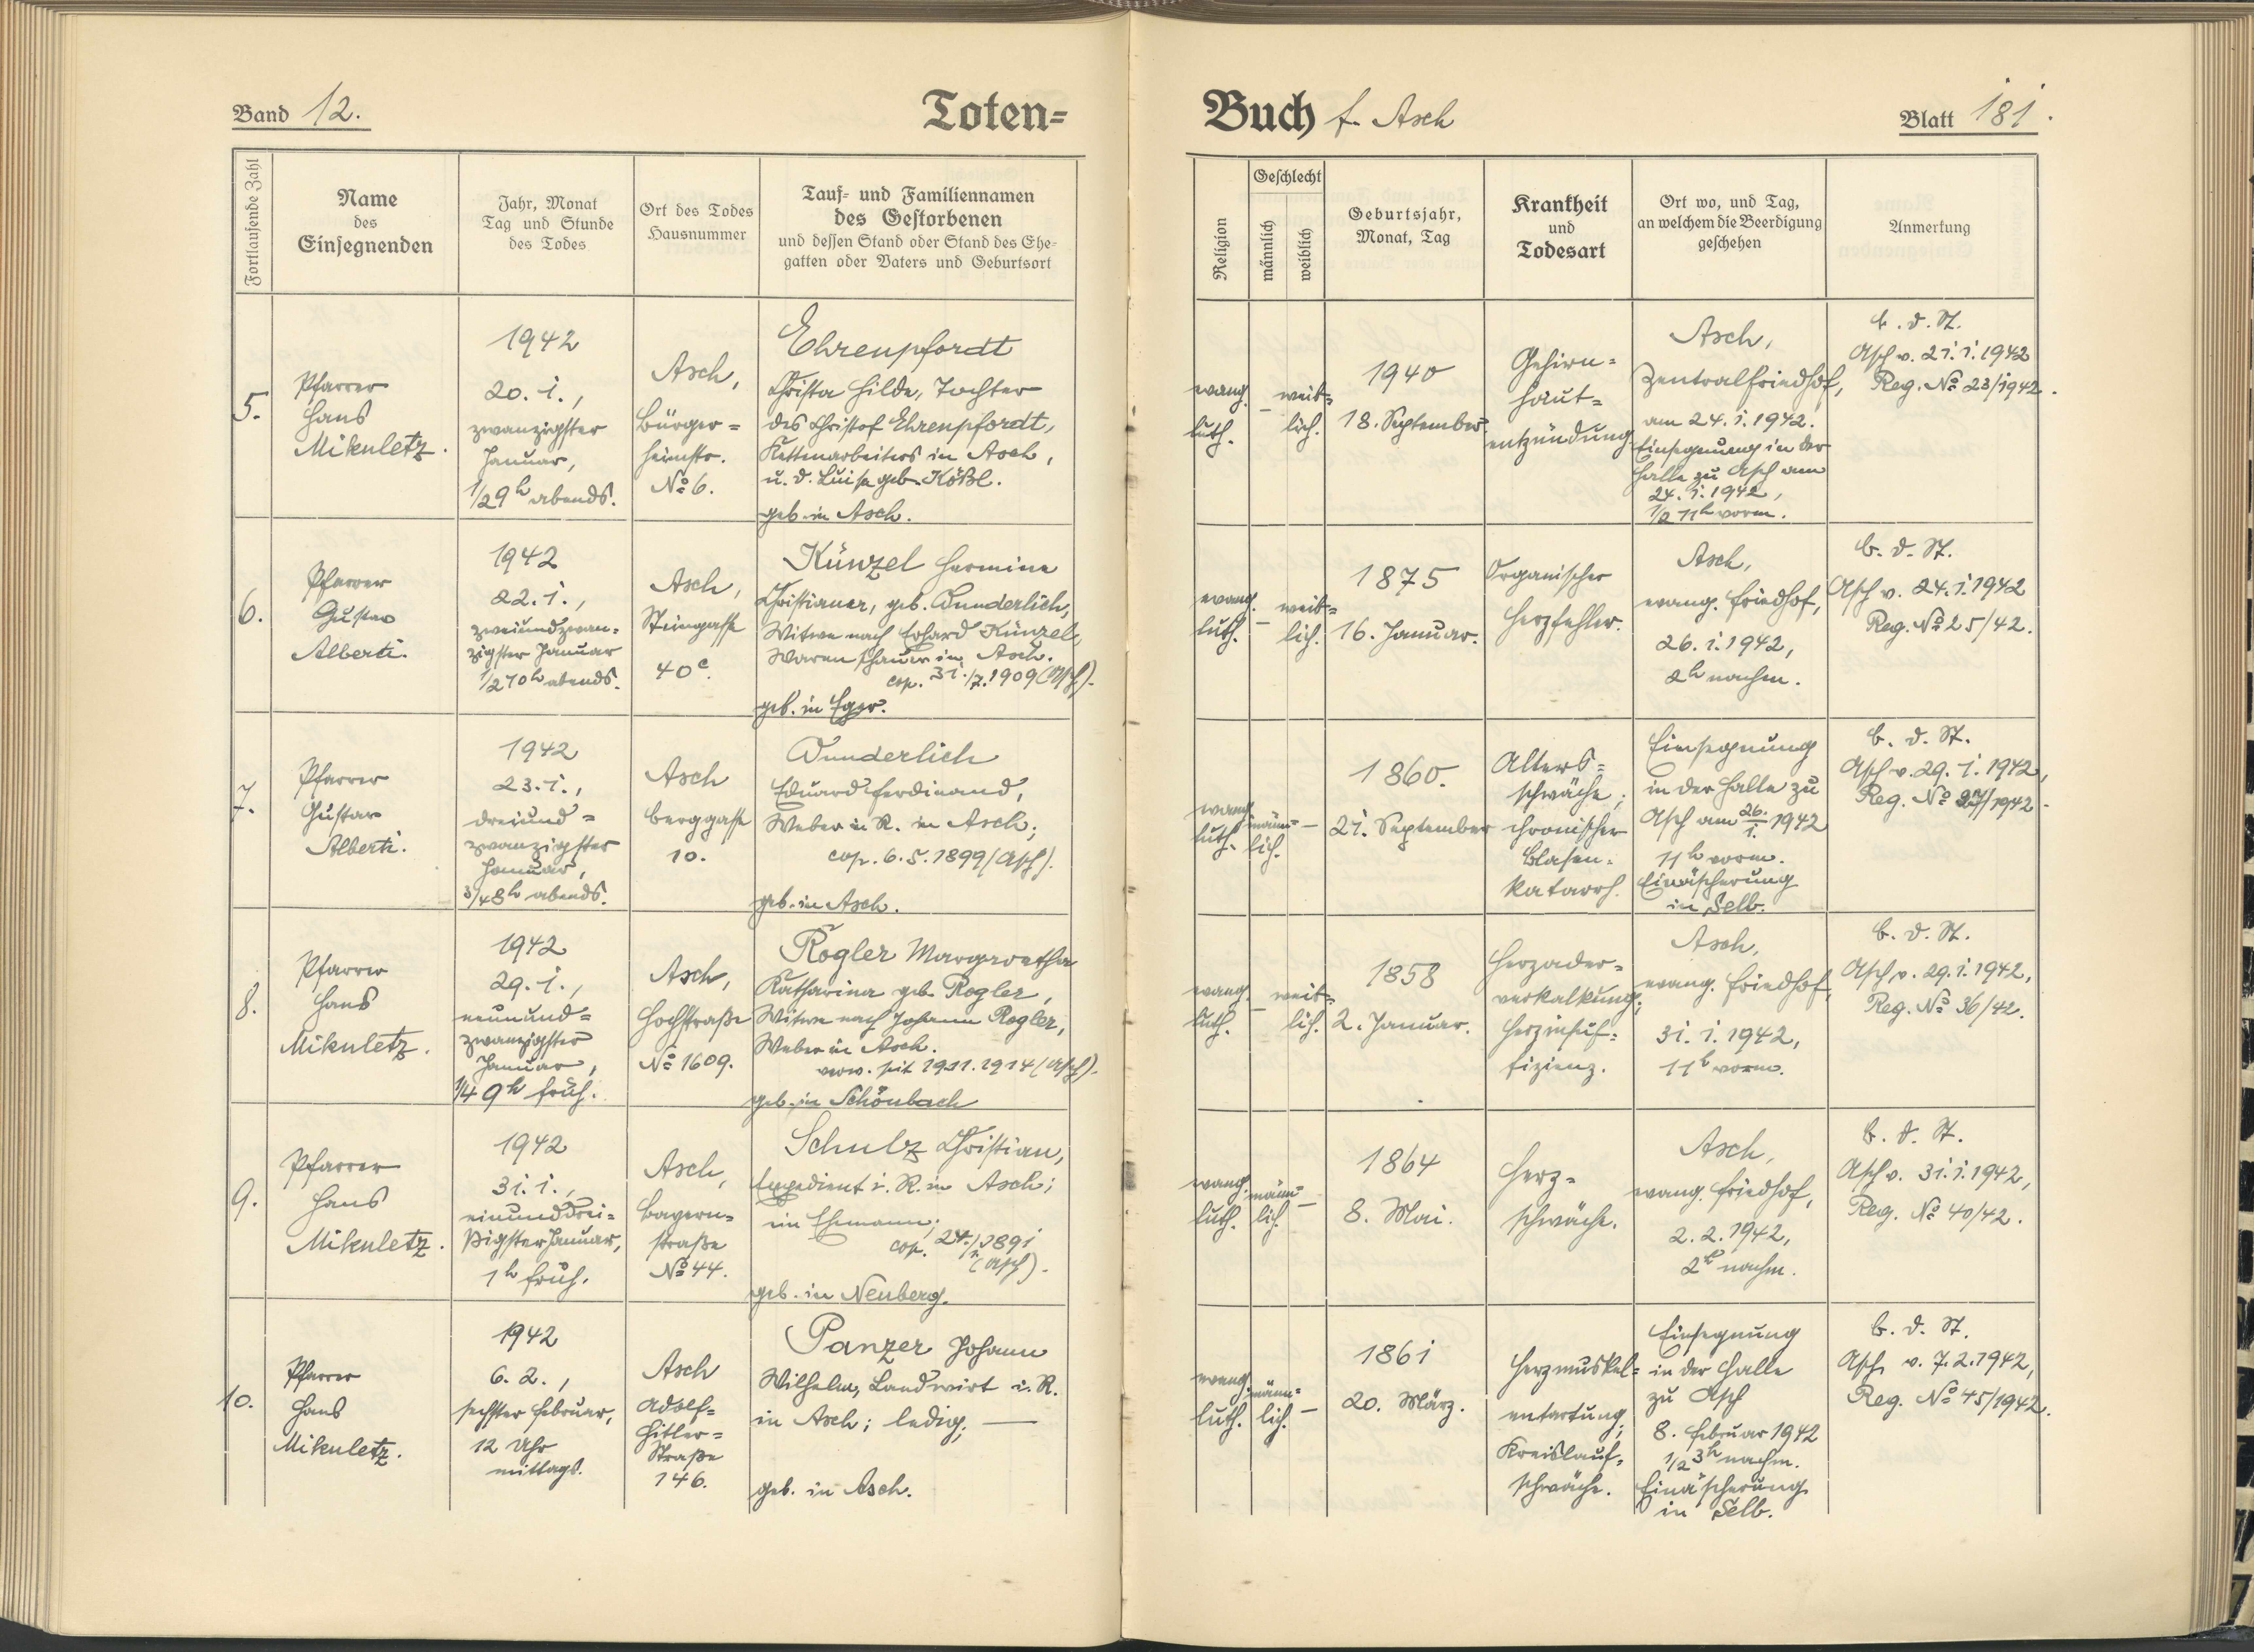 Band 12.
Toten=
Buch f. Asch
Blatt 181.
Fortlaufende Zahl
Name
des
Einsegnenden
Jahr, Monat
Tag und Stunde
des Todes
Ort des Todes
Hausnummer
Tauf- und Familiennamen
des Gestorbenen
und dessen Stand oder Stand des Ehe-
gatten oder Vaters und Geburtsort
Religion
Geschlecht
männlich
weiblich
Geburtsjahr,
Monat, Tag
Krankheit
und
Todesart
Ort wo, und Tag,
an welchem die Beerdigung
geschehen
Anmerkung
5.
Pfarrer
Hans
Mikuletz.
1942
20. 1.,
zwanzigster
Januar,
1/2 9h abends.
Asch,
Bürger=
heimstr.
No 6.
Ehrenpfordt
Christa Hilde, Tochter
des Christof Ehrenpfordt,
Kettenarbeiters in Asch,
u. d. Luise geb. Kößl.
geb. in Asch.
evang.
luth.
–
weib=
lich.
1940
18. September
Gehirn=
haut=
entzündung
Asch,
Zentralfriedhof,
am 24. 1. 1942.
Einsegnung in der
Halle zu Asch am
24. 1. 1942,
1/2 11h vorm.
b. d. St.
Asch v. 21. 1. 1942
Reg. No 23/1942.
6.
Pfarrer
Gustav
Alberti.
1942
22. 1.,
zweiundzwan=
zigster Januar
1/2 10h abends.
Asch,
Steingasse
40c.
Künzel Hermine
Christiane, geb. Wunderlich,
Witwe nach Erhard Künzel,
Warenschauer in Asch.
cop. 31./7. 1909 (Asch).
geb. in Eger.
evang.
luth.
–
weib=
lich.
1875
16. Januar.
Organischer
Herzfehler.
Asch,
evang. Friedhof,
26. 1. 1942,
2h nachm.
b. d. St.
Asch v. 24. 1. 1942
Reg. No 25/42.
7.
Pfarrer
Gustav
Alberti.
1942
23. 1.,
dreiund=
zwanzigster
Januar,
3/4 8h abends.
Asch
Berggasse
10.
Wunderlich
Eduard Ferdinand,
Weber i. R. in Asch;
cop. 6. 5. 1899 (Asch).
geb. in Asch.
evang.
luth.
männ=
lich.
–
1860.
21. September
Alters=
schwäche;
chronischer
Blasen=
katarrh.
Einsegnung
in der Halle zu
Asch am 26./1. 1942
11h vorm.
Einäscherung
in Selb.
b. d. St.
Asch v. 29. 1. 1942,
Reg. No 27/1942.
8.
Pfarrer
Hans
Mikuletz.
1942
29. 1.,
neunund=
zwanzigster
Januar,
1/4 9h früh.
Asch,
Hochstraße
No 1609.
Rogler Margaretha
Katharina geb. Rogler,
Witwe nach Johann Rogler,
Weber in Asch.
verw. seit 19.11.1914 (Asch).
geb. in Schönbach
evang.
luth.
–
weib=
lich.
1858
2. Januar.
Herzader=
verkalkung;
Herzinsuf=
fizienz.
Asch,
evang. Friedhof,
31. 1. 1942,
11h vorm.
b. d. St.
Asch v. 29. 1. 1942,
Reg. No 36/42.
9.
Pfarrer
Hans
Mikuletz.
1942
31. 1.,
einunddrei=
ßigster Januar,
1h früh.
Asch,
Bayern=
straße
No 44.
Schulz Christian,
Expedient i. R. in Asch;
ein Ehemann;
cop. 24. 1891
(Asch).
geb. in Neuberg.
evang.
luth.
männ=
lich.
–
1864
8. Mai.
Herz=
schwäche.
Asch,
evang. Friedhof,
2. 2. 1942,
2h nachm.
b. d. St.
Asch v. 31. 1. 1942,
Reg. No 40/42.
10.
Pfarrer
Hans
Mikuletz.
1942
6. 2.,
sechster Februar,
12 Uhr
mittags.
Asch
Adolf=
Hitler=
Straße
146.
Panzer Johann
Wilhelm, Landwirt i. R.
in Asch; ledig; —
geb. in Asch.
evang.
luth.
männ=
lich.
–
1861
20. März.
Herzmuskel=
entartung;
Kreislauf=
schwäche.
Einsegnung
in der Halle
zu Asch
8. Februar 1942
1/2 3h nachm.
Einäscherung
in Selb.
b. d. St.
Asch v. 7. 2. 1942,
Reg. No 45/1942.